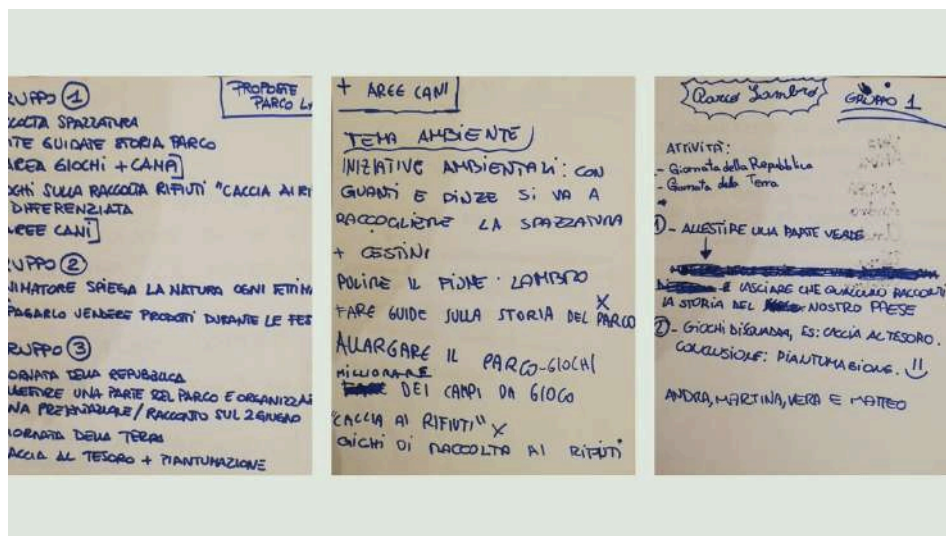 RUPPO 1
PROPOSTE
PARCO LA
COLTA SPAZZATURA
ITE GUIDATE STORIA PARCO
AREA GIOCHI + CAMPI
OCHI SULLA RACCOLTA RIFIUTI "CACCIA AI RI
DIFFERENZIATA
AREE CANI
RUPPO 2
NIMATORE SPIEGA LA NATURA OGNI SETTIMA
PAGARLO VENDERE PRODOTTI DURANTE LE FES
RUPPO 3
IORNATA DELLA REPUBBLICA
UNA PARTE DEL PARCO E ORGANIZZA
/ RACCONTO SUL 2 GIUGNO
IORNATA DELLA TERRA
ACCIA AL TESORO + PIANTUMAZIONE
+ AREE CANI
TEMA AMBIENTE
INIZIATIVE AMBIENTALI: CON
GUANTI E PINZE SI VA A
RACCOGLIERE LA SPAZZATURA
+ CESTINI
PULIRE IL FIUME LAMBRO
FARE GUIDE SULLA STORIA DEL PARCO X
ALLARGARE IL PARCO-GIOCHI
MIGLIORARE DEI CAMPI DA GIOCO
"CACCIA AI RIFIUTI" X
GIOCHI DI RACCOLTA AI RIFIUTI
Parco Lambro GRUPPO 1
ATTIVITÀ:
- Giornata della Repubblica
- Giornata della Terra
1 - ALLESTIRE UNA PARTE VERDE
E LASCIARE CHE QUALCUNO RACCONTI
LA STORIA DEL NOSTRO PAESE
2 - GIOCHI DI SQUADRA, ES: CACCIA AL TESORO.
CONCLUSIONE: PIANTUMAZIONE. !!
ANDRA, MARTINA, VERA E MATTEO